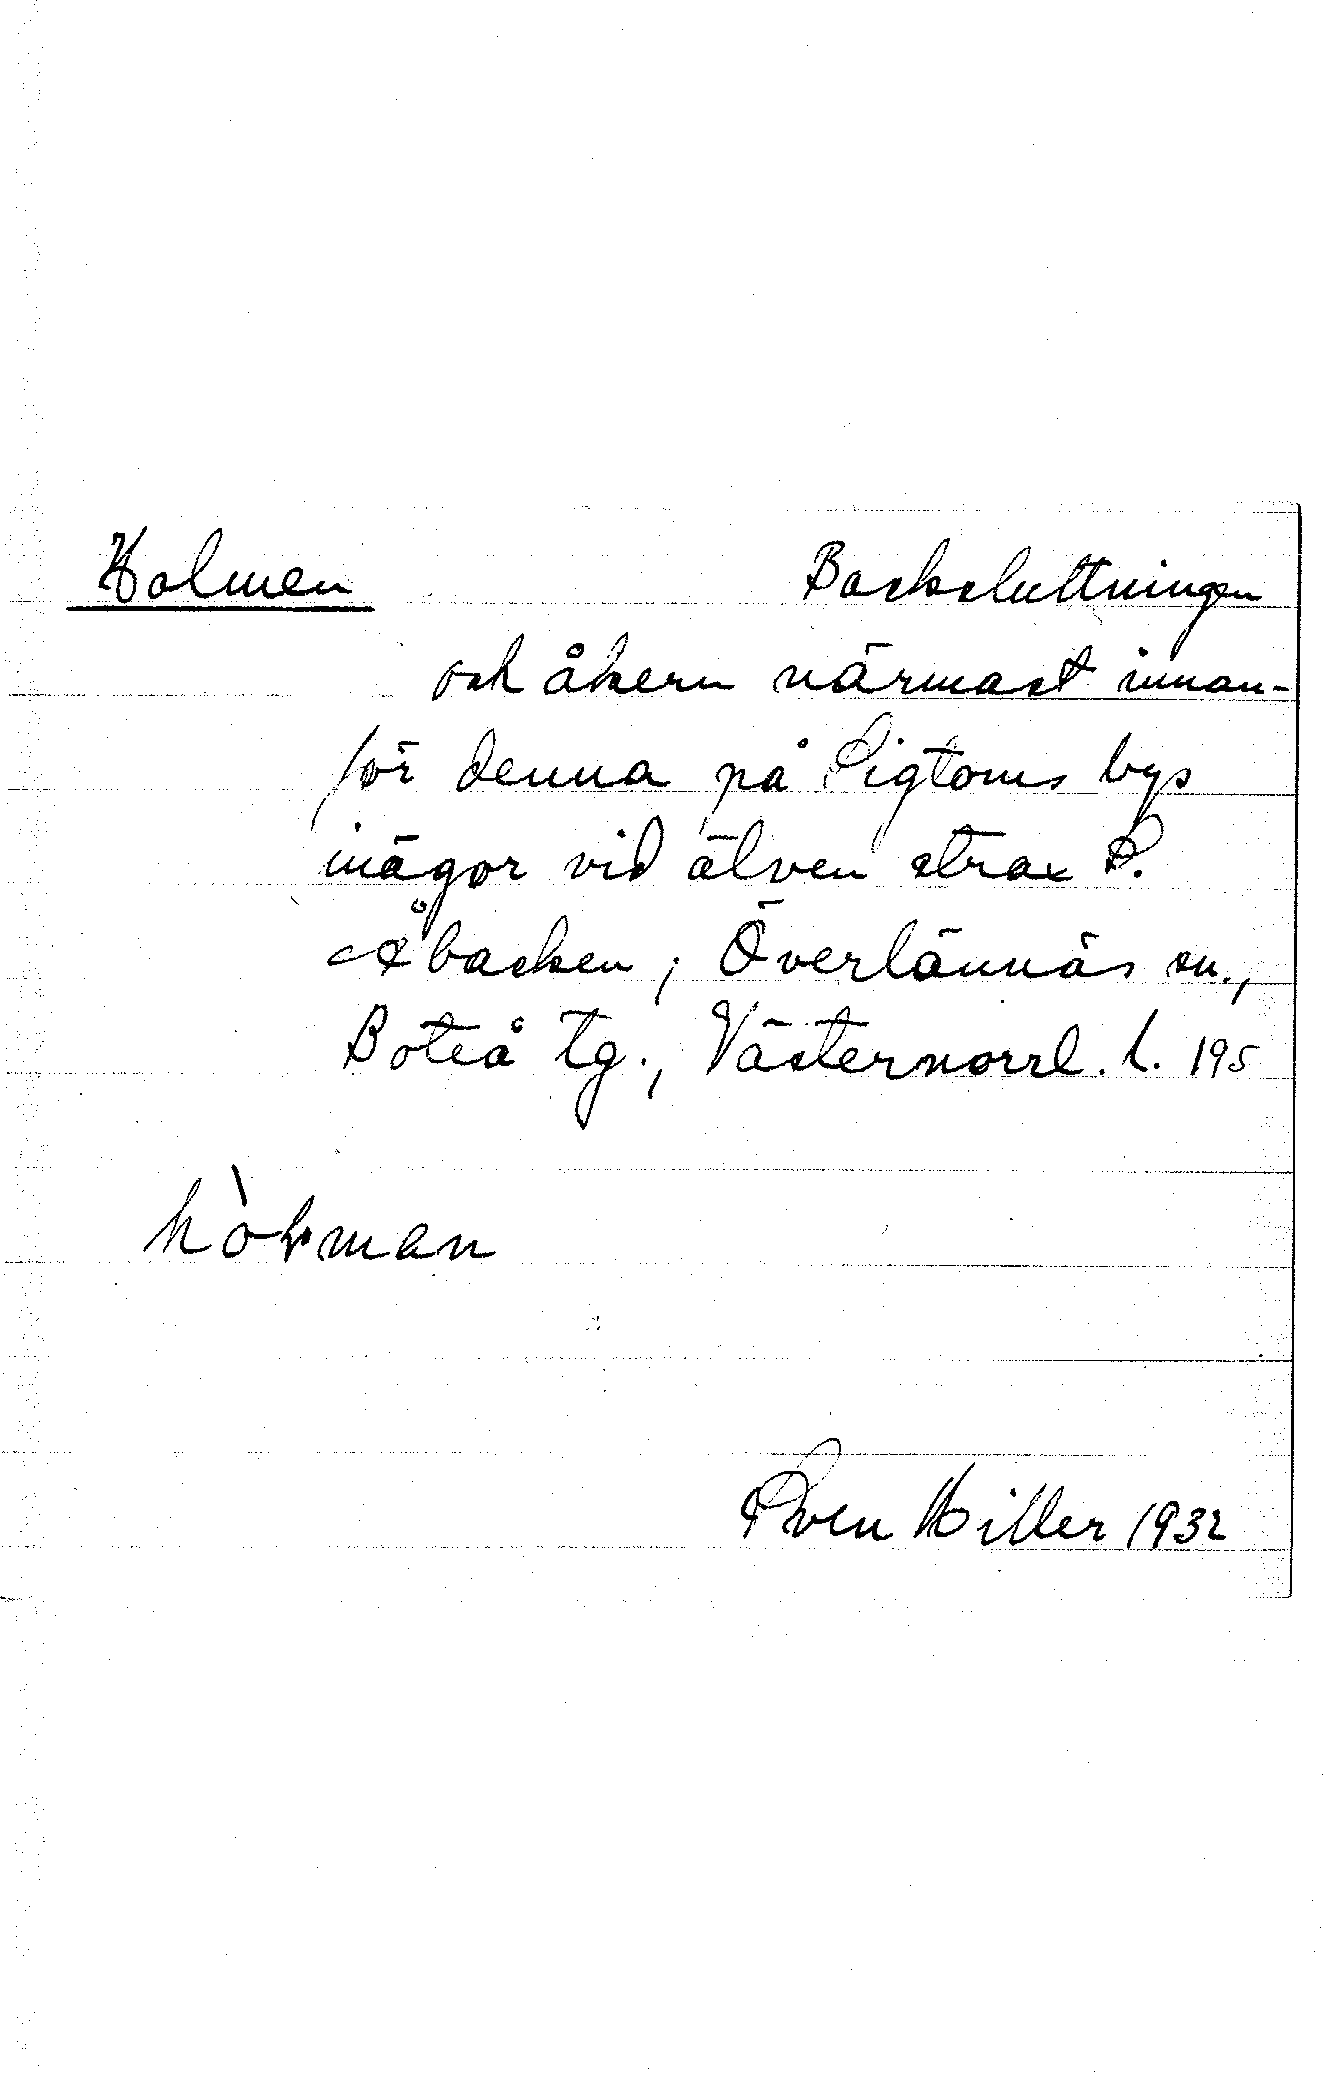 Holmen Backsluttningen
och åkern närmast innan-
för denna på Sigtoms bys
inägor vid älven strax S.
Åbacken; Överlännäs sn.,
Boteå tg., Västernorrl. l. 195
Sven Hiller 1932